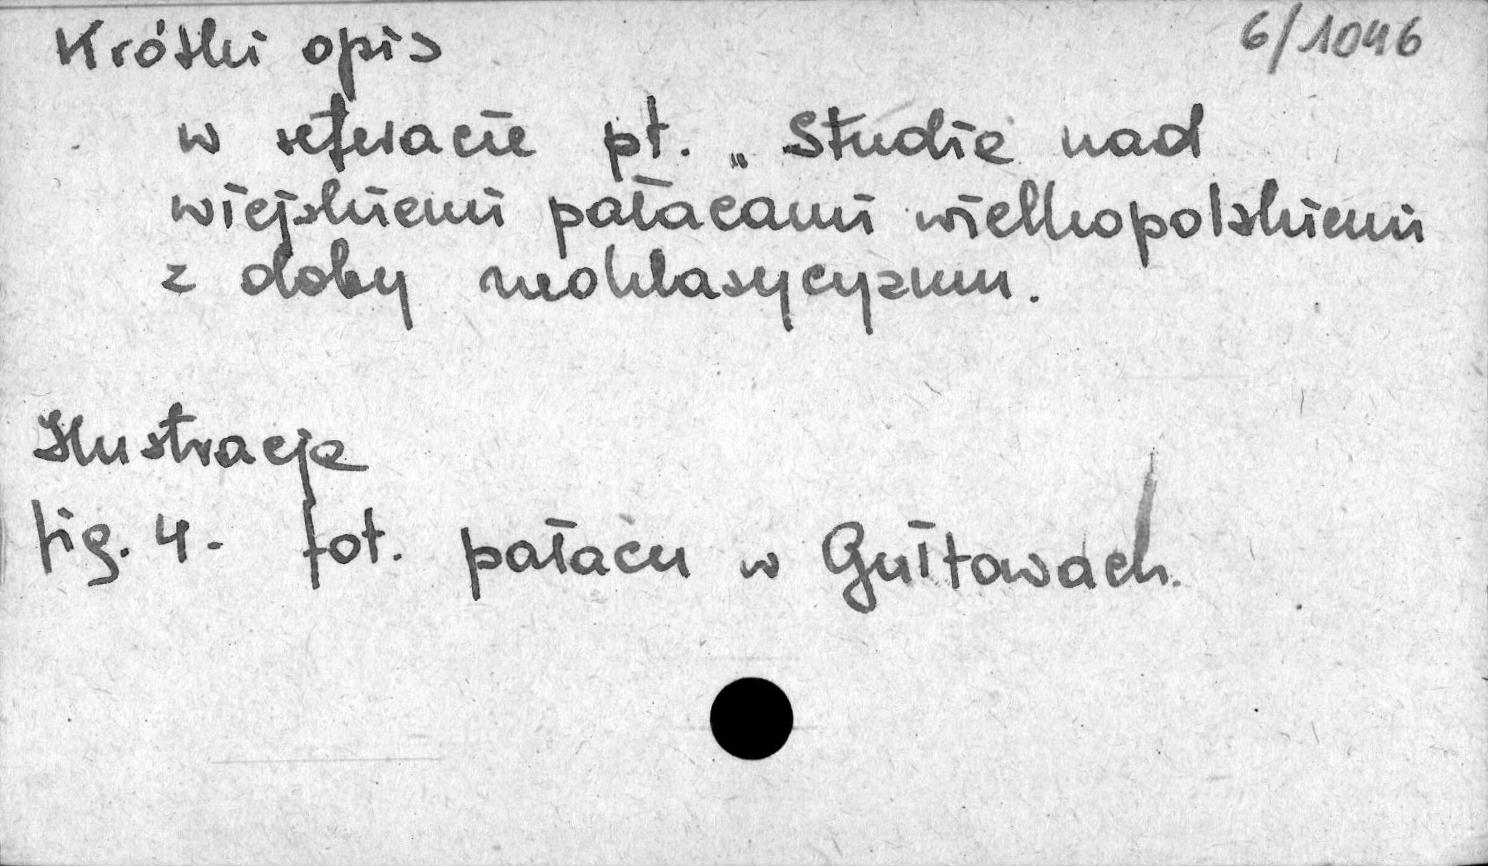 Krótki opis 6/1046
w referacie pt. „Studia nad
wiejskiemi pałacami wielkopolskiemi
z doby neoklasycyzmu.
Ilustracja
fig. 4. fot. pałacu w Gułtowach.